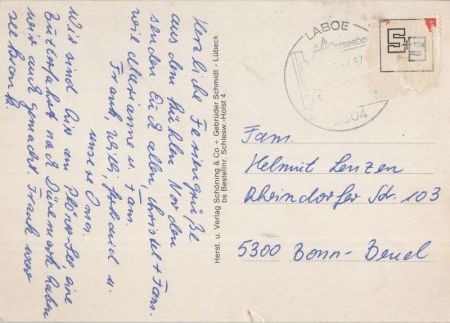 Herzliche Feriengrüße
aus dem kühlen Norden
senden Euch allen, Christel + Fam.
wie Marianne u. Fam.
Frank, Willi, Gerhard u.
unsere Oma.
Wir sind hier am Plöner-See eine
Butterfahrt nach Dänemark haben
wir auch gemacht. Frank war
seekrank.
Herst. u. Verlag Schöning & Co + Gebrüder Schmidt - Lübeck
bs Bestellnr. Schlesw.-Holst 4
LABOE
Ostseebad
2304
Fam.
Helmut Lenzen
Rheindorfer Str. 103
5300 Bonn-Beuel